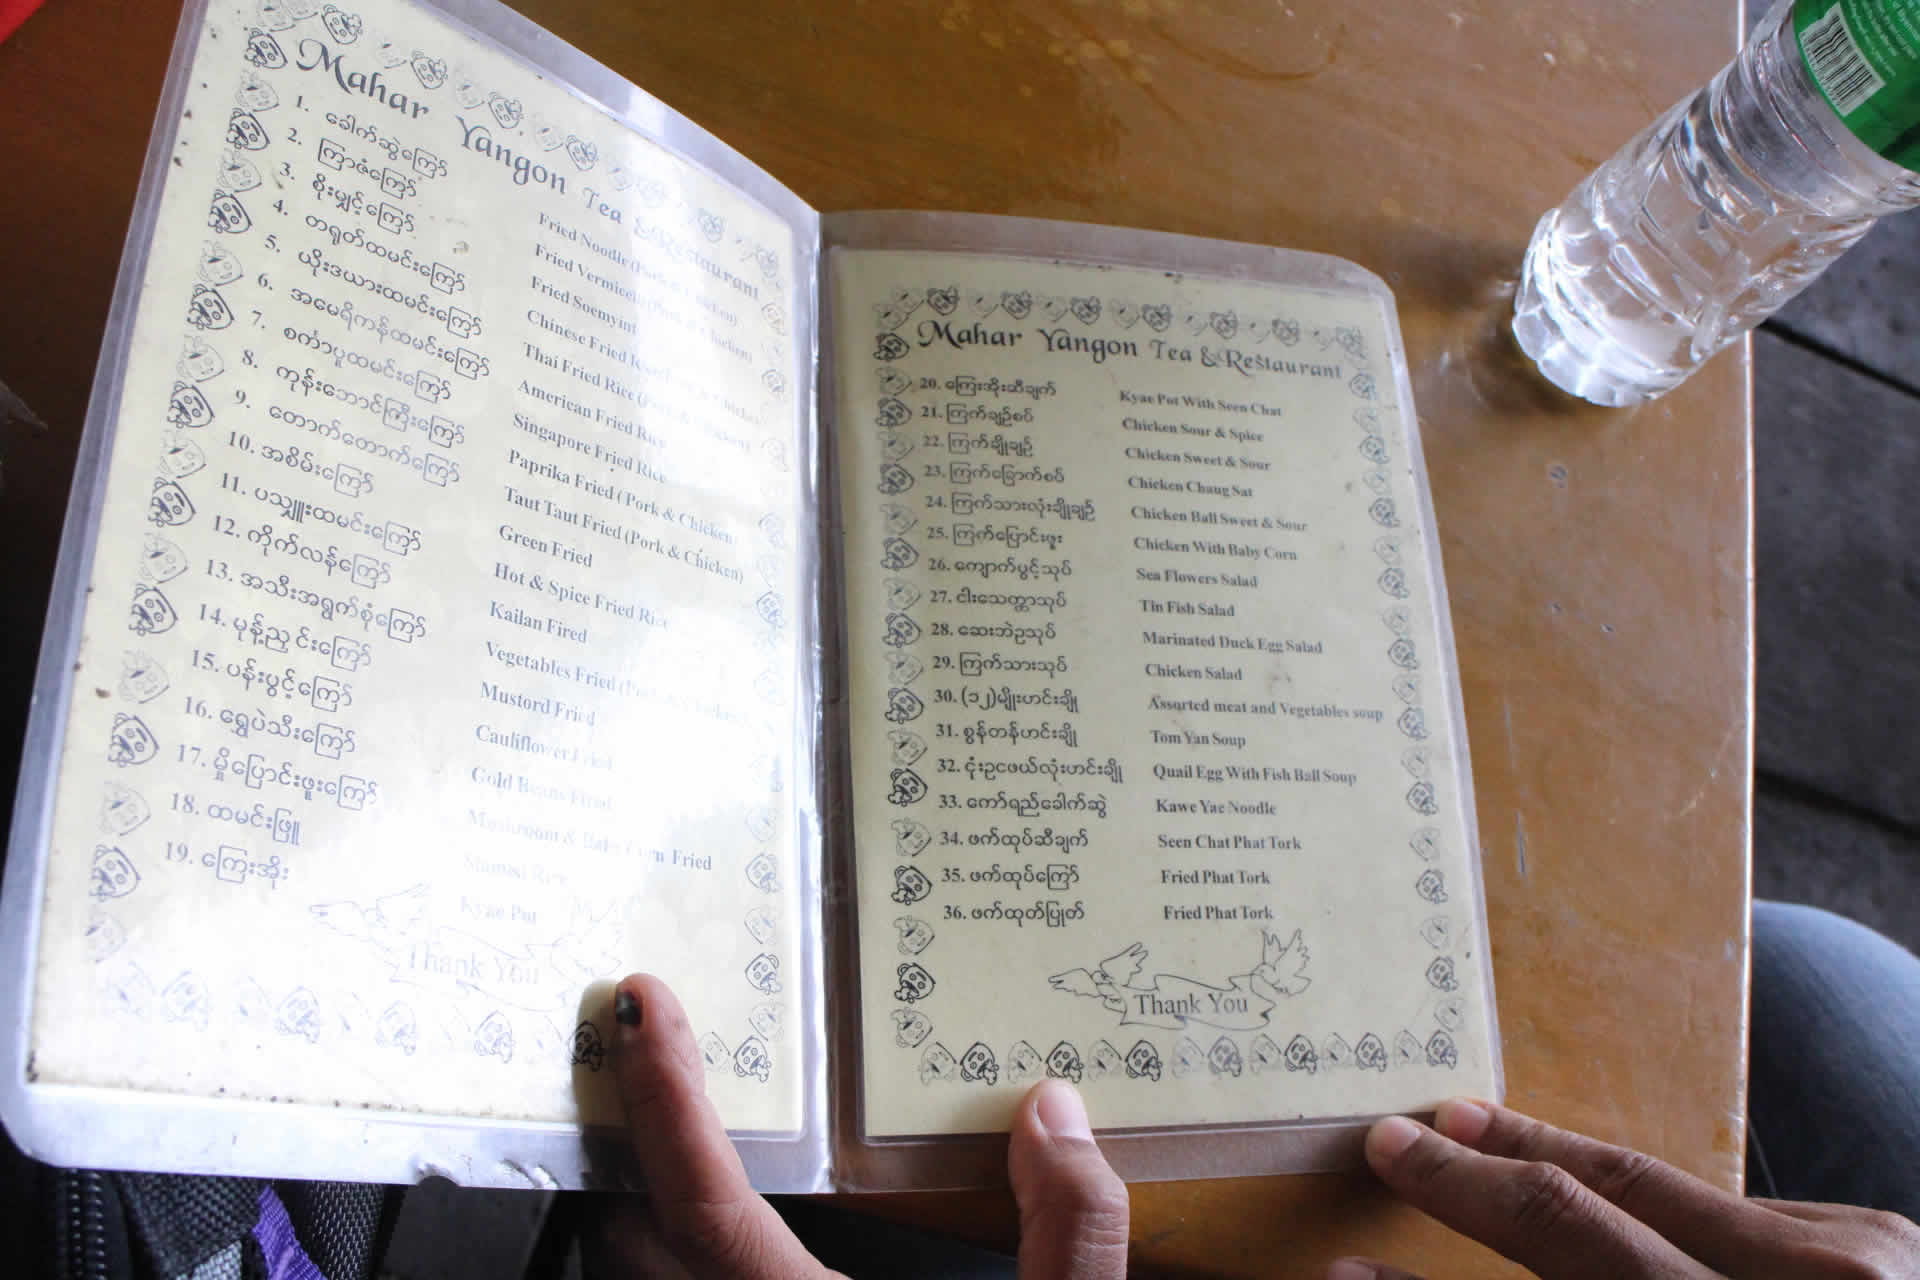 Mahar Yangon Tea & Restaurant
1. ခေါက်ဆွဲကြော် Fried Noodle (Pork & Chicken)
2. ကြာဇံကြော် Fried Vermicelli (Pork & Chicken)
3. စိုးမျှင့်ကြော် Fried Soemyint
4. တရုတ်ထမင်းကြော် Chinese Fried Rice (Pork & Chicken)
5. ယိုးဒယားထမင်းကြော် Thai Fried Rice (Pork & Chicken)
6. အမေရိကန်ထမင်းကြော် American Fried Rice
7. စင်္ကာပူထမင်းကြော် Singapore Fried Rice
8. ကုန်းဘောင်ကြီးကြော် Paprika Fried (Pork & Chicken)
9. တောက်တောက်ကြော် Taut Taut Fried (Pork & Chicken)
10. အစိမ်းကြော် Green Fried
11. ပသျှူးထမင်းကြော် Hot & Spice Fried Rice
12. ကိုက်လန်ကြော် Kailan Fired
13. အသီးအရွက်စုံကြော် Vegetables Fried (Pork & Chicken)
14. မုန့်ညှင်းကြော် Mustord Fried
15. ပန်းပွင့်ကြော် Cauliflower Fried
16. ရွှေပဲသီးကြော် Gold Beans Fried
17. မှိုပြောင်းဖူးကြော် Mushroom & Baby Corn Fried
18. ထမင်းဖြူ Rice
19. ကြေးအိုး Kyae Pot
Thank You
Mahar Yangon Tea & Restaurant
20. ကြေးအိုးဆီချက် Kyae Pot With Seen Chat
21. ကြက်ချဉ်စပ် Chicken Sour & Spice
22. ကြက်ချိုချဉ် Chicken Sweet & Sour
23. ကြက်ခြောက်စပ် Chicken Chaug Sat
24. ကြက်သားလုံးချိုချဉ် Chicken Ball Sweet & Sour
25. ကြက်ပြောင်းဖူး Chicken With Baby Corn
26. ကျောက်ပွင့်သုပ် Sea Flowers Salad
27. ငါးသေတ္တာသုပ် Tin Fish Salad
28. ဆေးဘဲဥသုပ် Marinated Duck Egg Salad
29. ကြက်သားသုပ် Chicken Salad
30. (၁၂)မျိုးဟင်းချို Assorted meat and Vegetables soup
31. စွန်တန်ဟင်းချို Tom Yan Soup
32. ငုံးဥငဖယ်လုံးဟင်းချို Quail Egg With Fish Ball Soup
33. ကော်ရည်ခေါက်ဆွဲ Kawe Yae Noodle
34. ဖက်ထုပ်ဆီချက် Seen Chat Phat Tork
35. ဖက်ထုပ်ကြော် Fried Phat Tork
36. ဖက်ထုတ်ပြုတ် Fried Phat Tork
Thank You